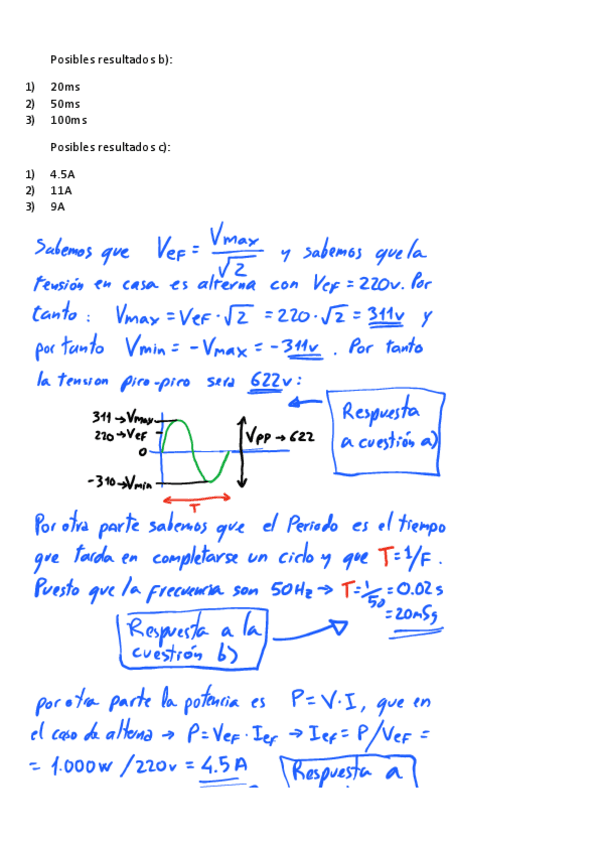 Posibles resultados b):
1) 20ms
2) 50ms
3) 100ms
Posibles resultados c):
1) 4.5A
2) 11A
3) 9A
Sabemos que VEF = Vmax/√2 y sabemos que la
tensión en casa es alterna con VEF = 220v. Por
tanto: Vmax = VEF·√2 = 220·√2 = 311v y
por tanto Vmin = -Vmax = -311v. Por tanto
la tension pico-pico será 622v:
311→Vmax
220→VEF
0
-310→Vmin
VPP→622
T
Respuesta
a cuestión a)
Por otra parte sabemos que el Periodo es el tiempo
que tarda en completarse un ciclo y que T=1/F.
Puesto que la frecuencia son 50Hz → T=1/50=0.02s
=20mSg
Respuesta a la
cuestión b)
por otra parte la potencia es P=V·I, que en
el caso de alterna → P=VEF·IEF → IEF=P/VEF =
= 1.000w/220v = 4.5A
Respuesta a